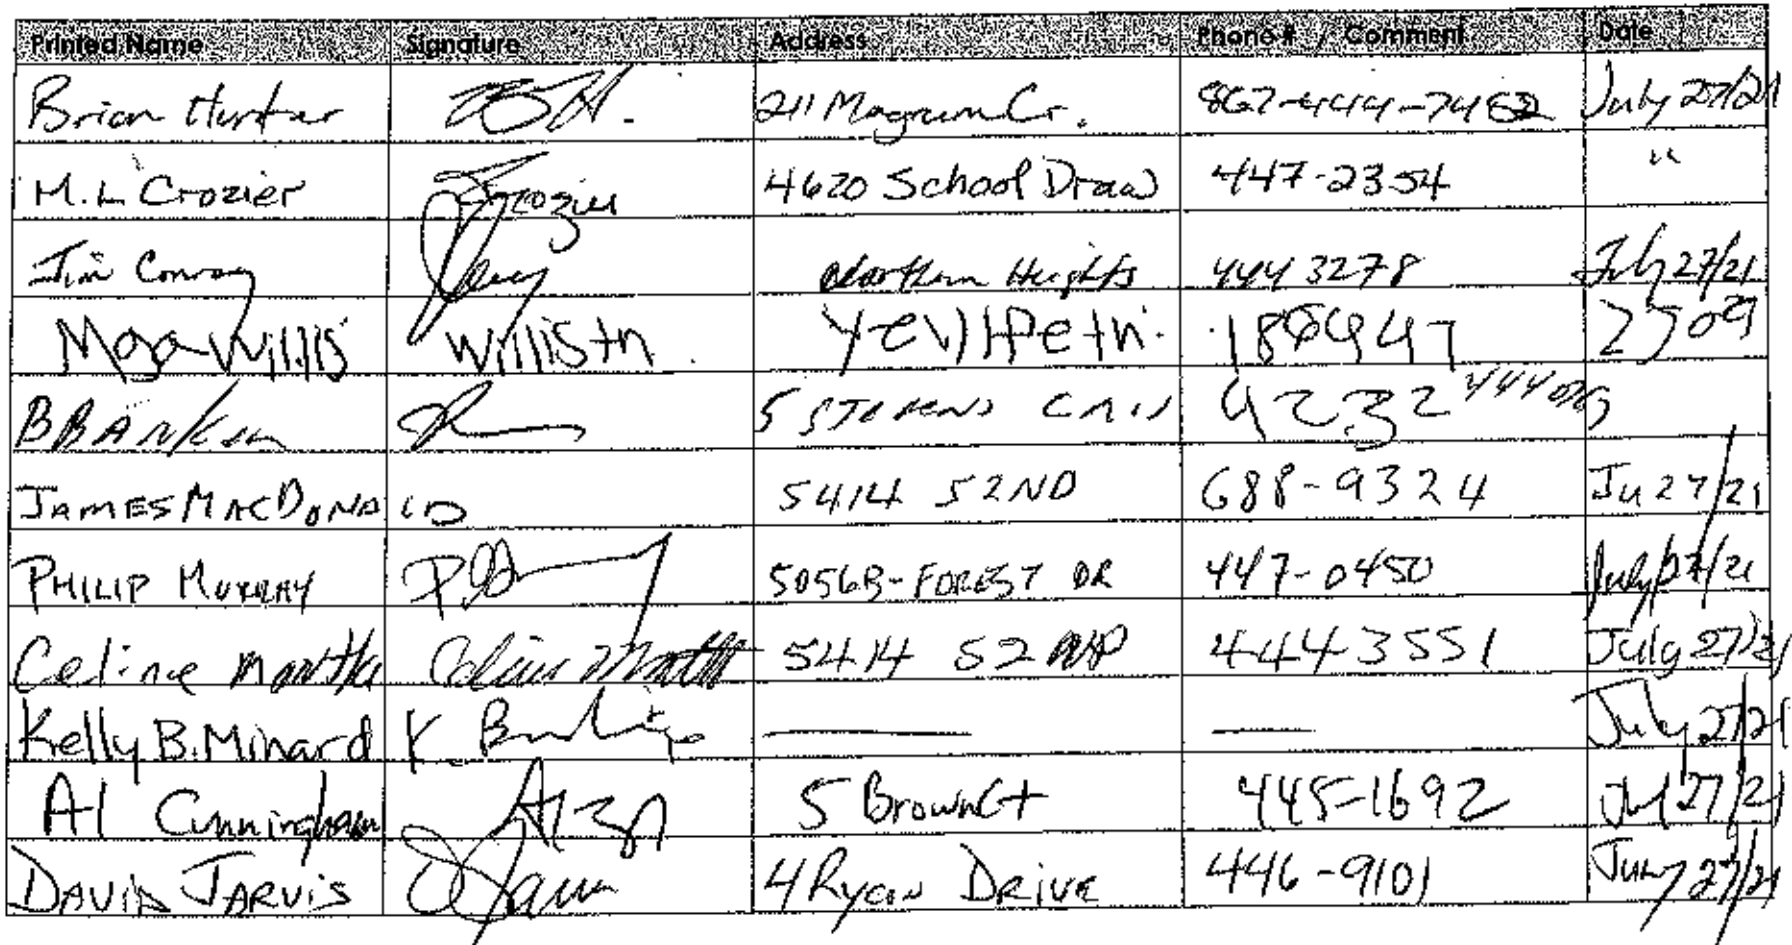 Printed Name Signature Address Phone # / Comment Date
Brian Hunter 211 Magrum Cr. 867-444-7452 July 27/21
M. L Crozier Crozier 4620 School Draw 447-2354 "
Jim Conroy Northern Heights 444 3278 July 27/21
Willis Willistn
5 4232
JAMES MACDONALD 5414 52ND 688-9324 Ju 27/21
PHILIP MURRAY 5056B-FOREST DR 447-0450 July/27/21
Celine 5414 52 444 3551 July 27/21
Kelly B. Minard K — — July 27/21
Al Cunningham 5 Brown Ct 445-1692 Jul 27/21
DAVID JARVIS 4 Ryan DRIVE 446-9101 July 27/21